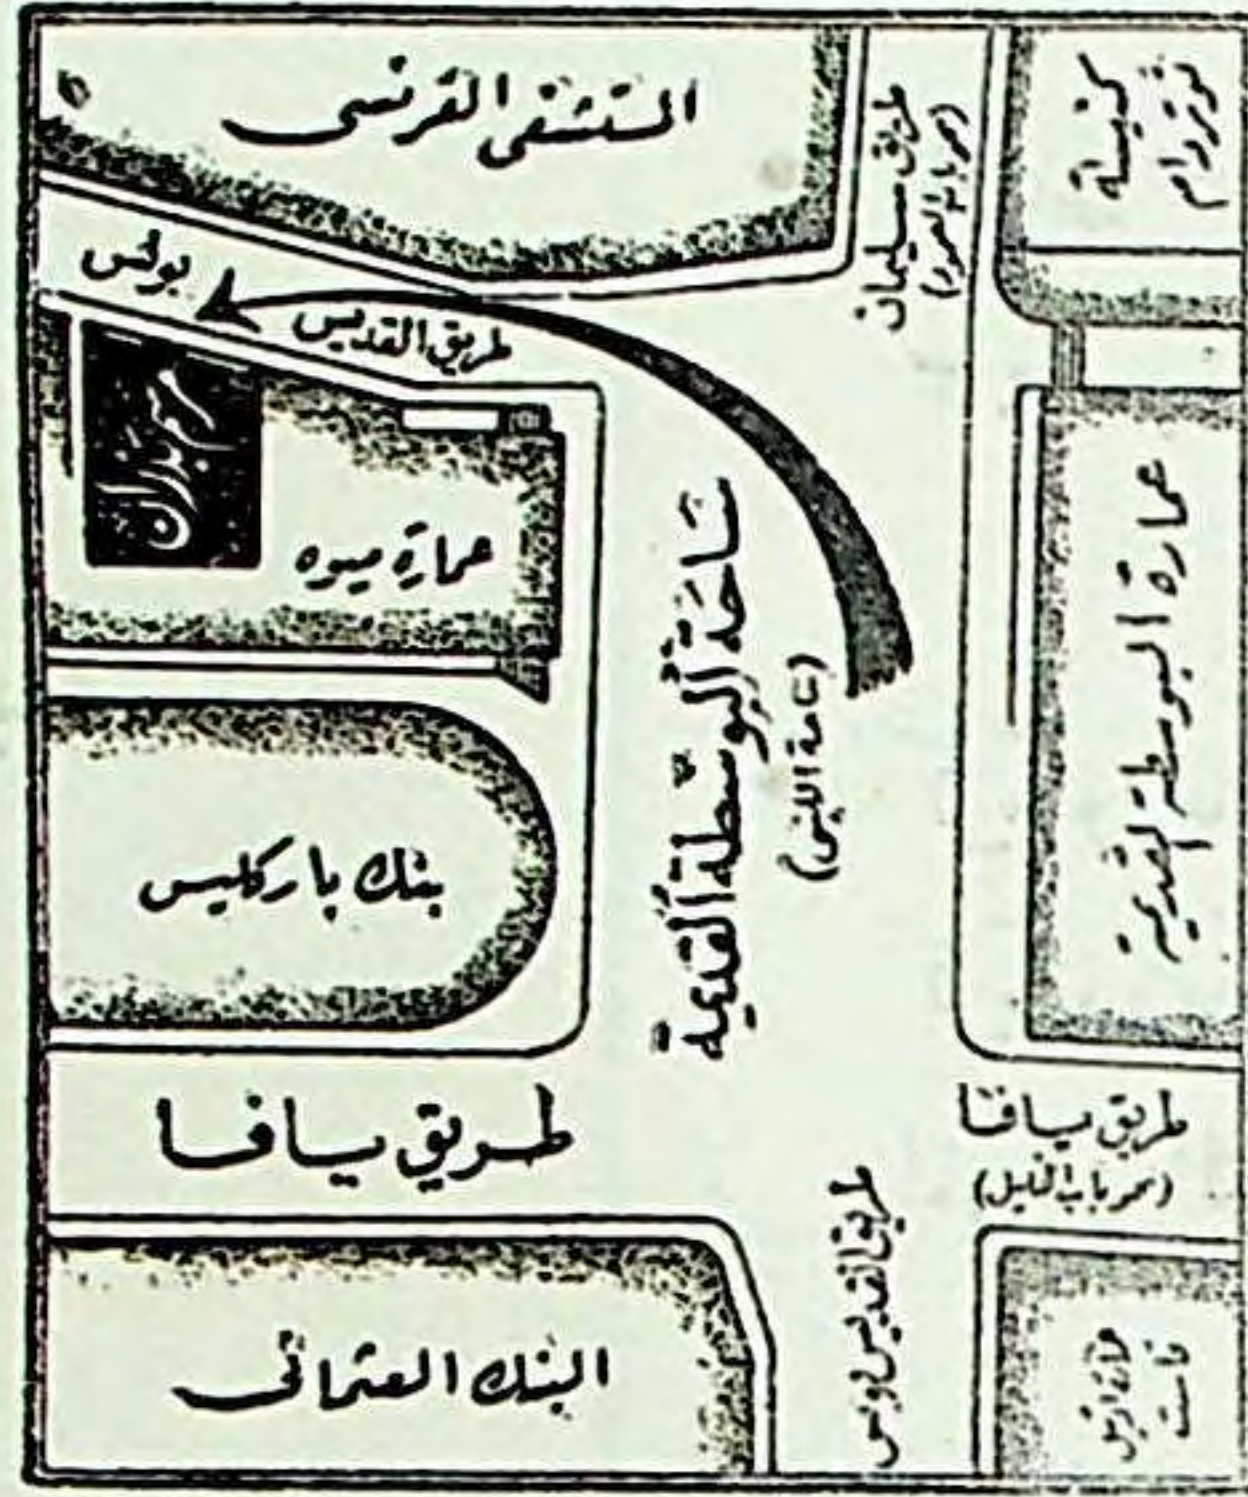 المستشفى الفرنسي
كنيسة
نوتردام
طريق سليمان
(نحو باب العمود)
بولس
طريق القديس
عمارة ميوه
ساحة البوسطة القديمة
(ساحة اللنبي)
عمارة البوسطة القديمة
بنك باركليس
طريق يافا
طريق يافا
(نحو باب الخليل)
طريق القديس لويس
البنك العثماني
فاست